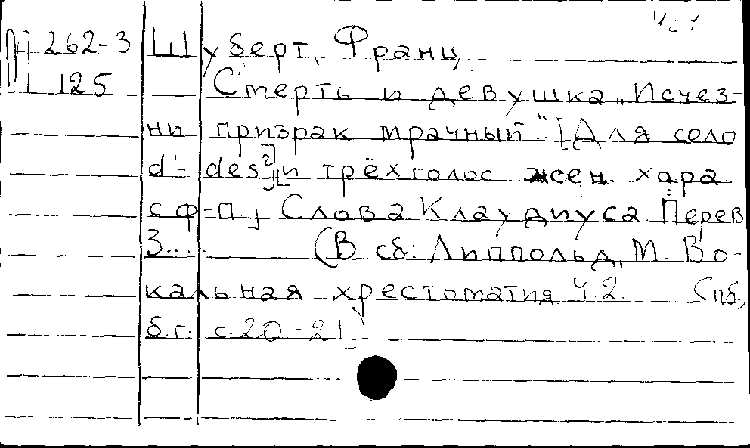 262-3 Шуберт, Франц
125 Смерть и девушка „Исчез-
ни призрак мрачный" [Для соло
d'- des²] [и трёхголос жен. хора
с ф-п], Слова Клаудиуса. Перев.
З... (В сб: Липпольд, М. Во-
кальная хрестоматия Ч. 2. Спб,
б.г. с. 20-21)